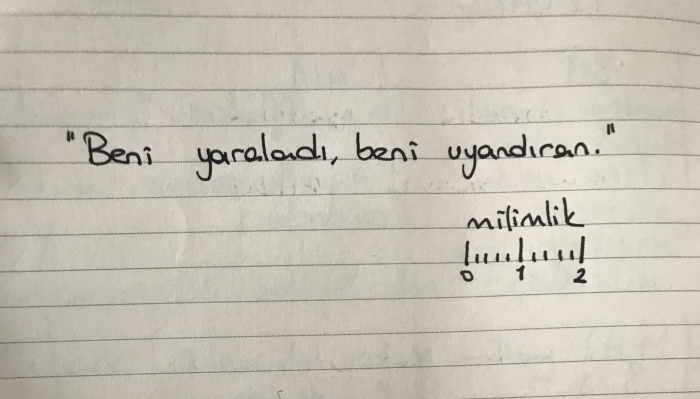 "Beni yaraladı, beni uyandıran."
milimlik
0 1 2